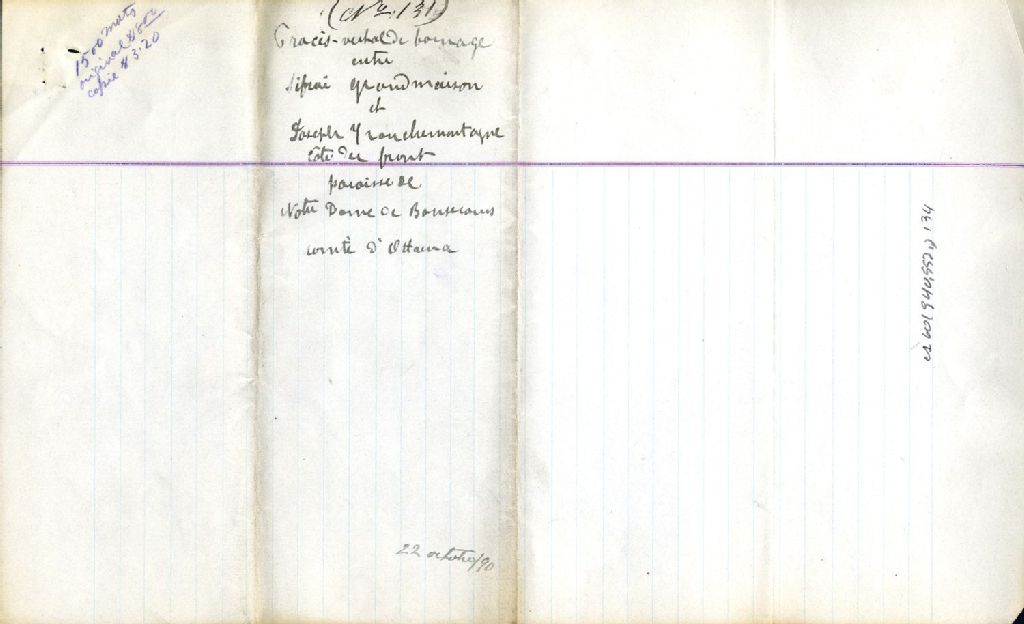 1500 mots
original $8.00
copie $3.20
(No. 131)
Procès-verbal de bornage
entre
Sifrai Grandmaison
et
Joseph Franchemontagne
Côte du front
paroisse de
Notre Dame de Bonsecours
comté d'Ottawa
22 octobre/90
134